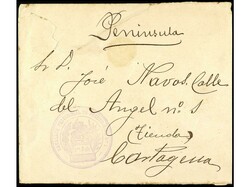 Peninsula
Sr D. José Navas. Calle
del Angel nº 1
(Tienda)
Cartagena